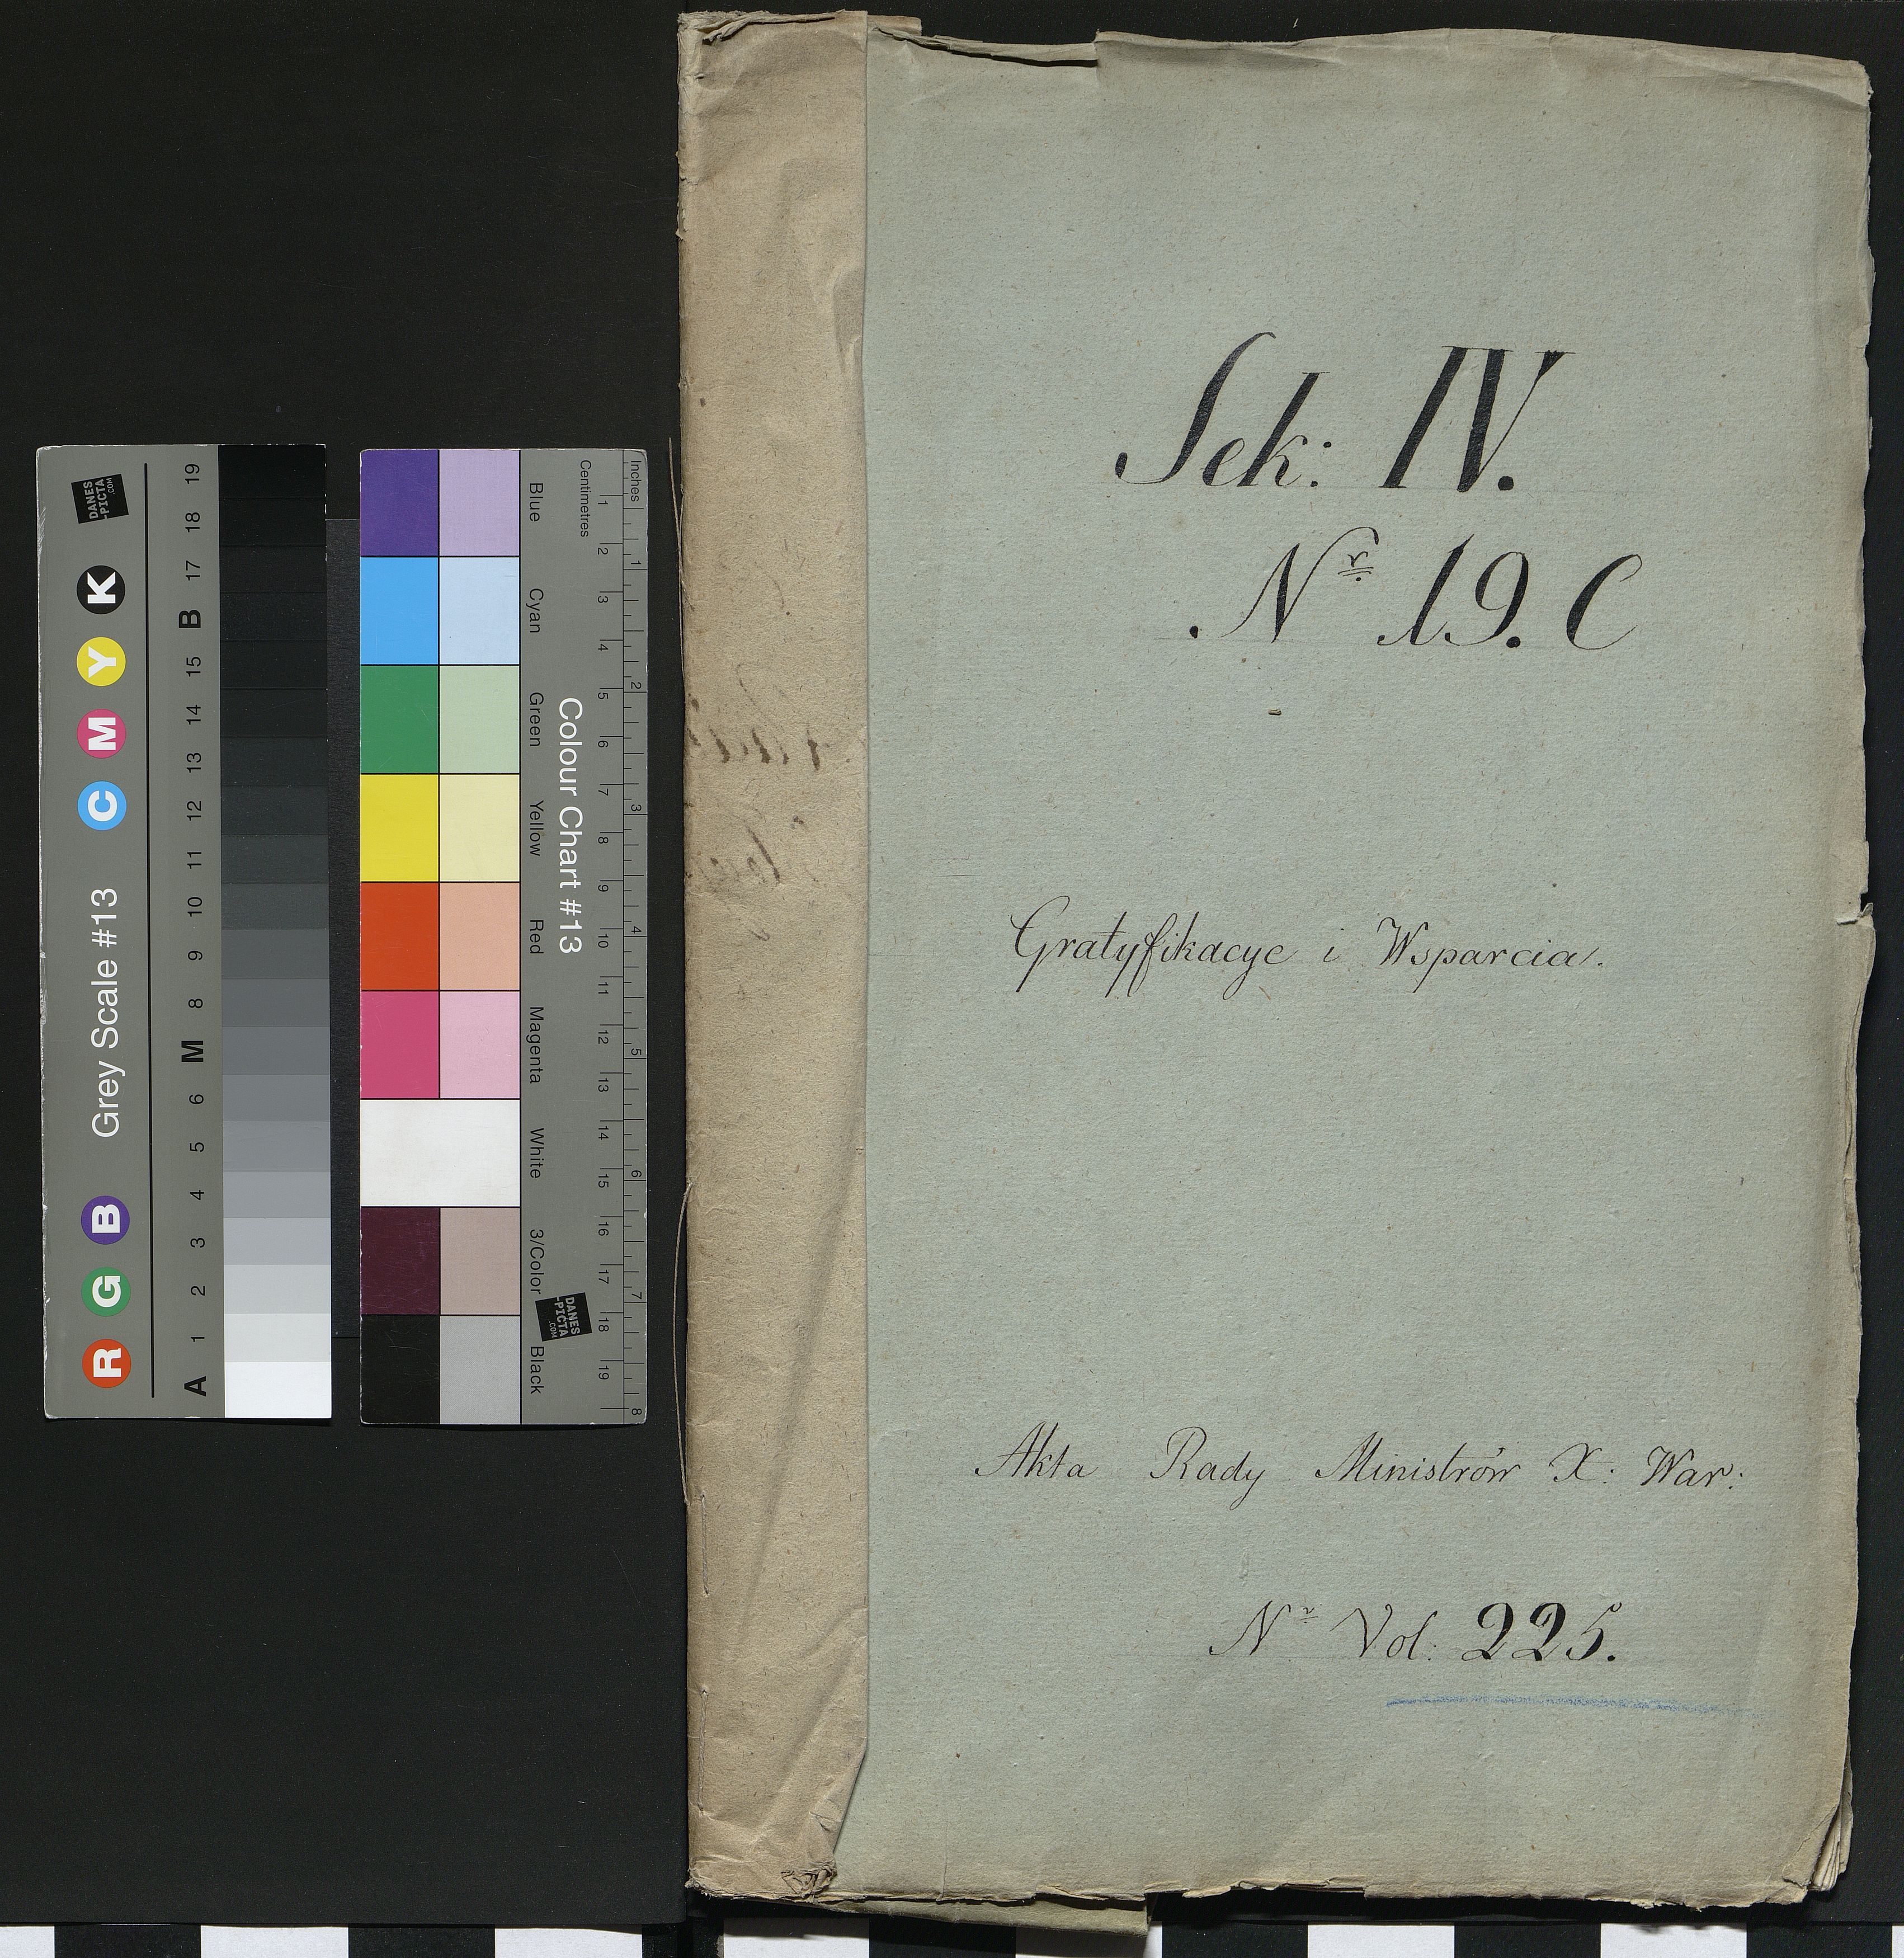 Sek: IV.
Nr 19. C
Gratyfikacye i Wsparcia.
Akta Rady Ministrów X: War:
Nr Vol: 225.
Grey Scale #13
R G B C M Y K
A 1 2 3 4 5 6 M 8 9 10 11 12 13 14 15 B 17 18 19
DANES
-PICTA
.COM
Colour Chart #13
Blue Cyan Green Yellow Red Magenta White 3/Color Black
Centimetres
1 2 3 4 5 6 7 8 9 10 11 12 13 14 15 16 17 18 19
Inches
1 2 3 4 5 6 7 8
DANES
-PICTA
.COM